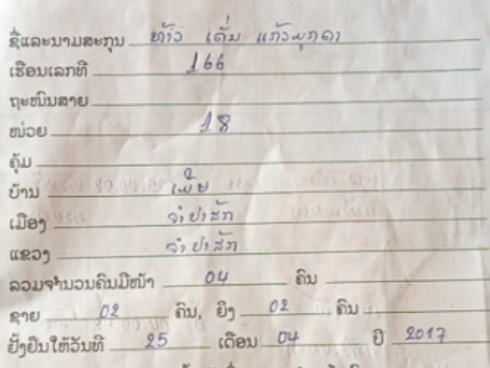 ຊື່ແລະນາມສະກຸນ ທ້າວ ເຄັ່ນ ແກ້ວມຸກດາ
ເຮືອນເລກທີ 166
ຖະໜົນສາຍ
ໜ່ວຍ 18
ຄຸ້ມ
ບ້ານ
ເມືອງ ຈຳປາສັກ
ແຂວງ ຈຳປາສັກ
ລວມຈຳນວນຄົນມີໜ້າ 04 ຄົນ
ຊາຍ 02 ຄົນ, ຍິງ 02 ຄົນ
ຢັ້ງຢືນໃຫ້ວັນທີ 25 ເດືອນ 04 ປີ 2017